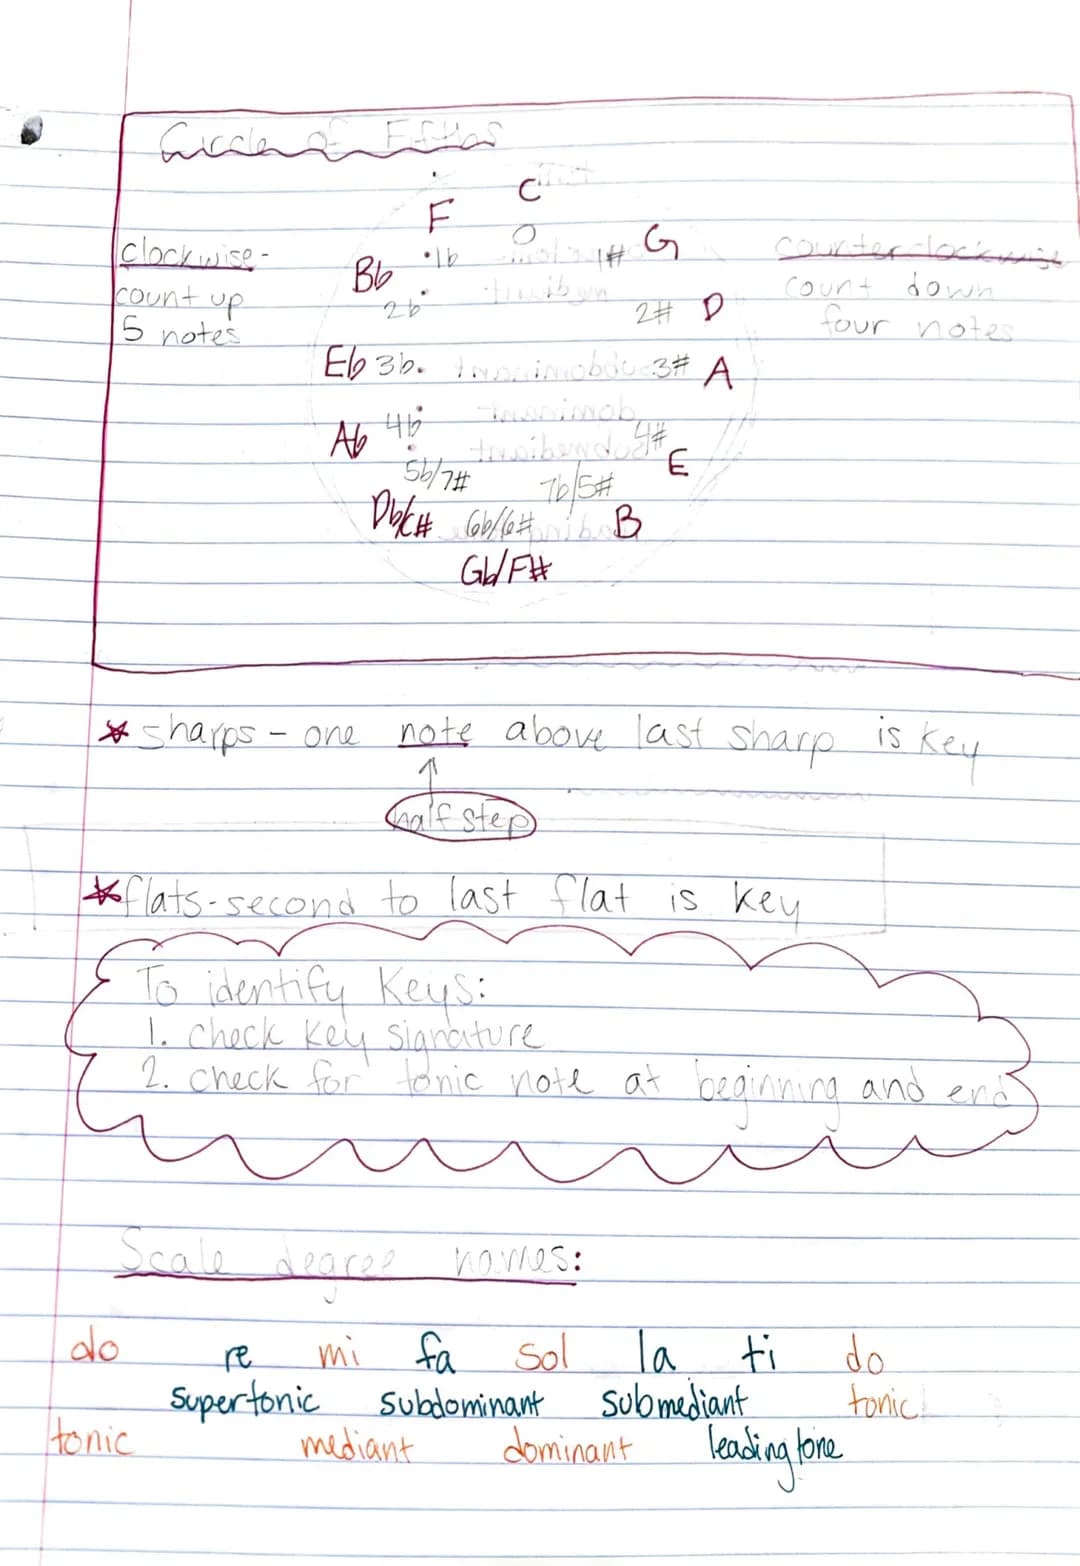 Circle of Fifths
C
F
O
G
clockwise-
counterclockwise
Bb
1b
1#
count up
count down
2b
2#
D
5 notes
four notes
Eb 3b
3# A
Ab 4b
4#
E
5b/7#
7b/5#
Db/C#
6b/6#
B
Gb/F#
* sharps - one note above last sharp is key
half step
* flats - second to last flat is key
To identify Keys:
1. check key signature
2. check for tonic note at beginning and end
Scale degree names:
do re mi fa sol la ti do
supertonic subdominant submediant tonic
tonic mediant dominant leading tone